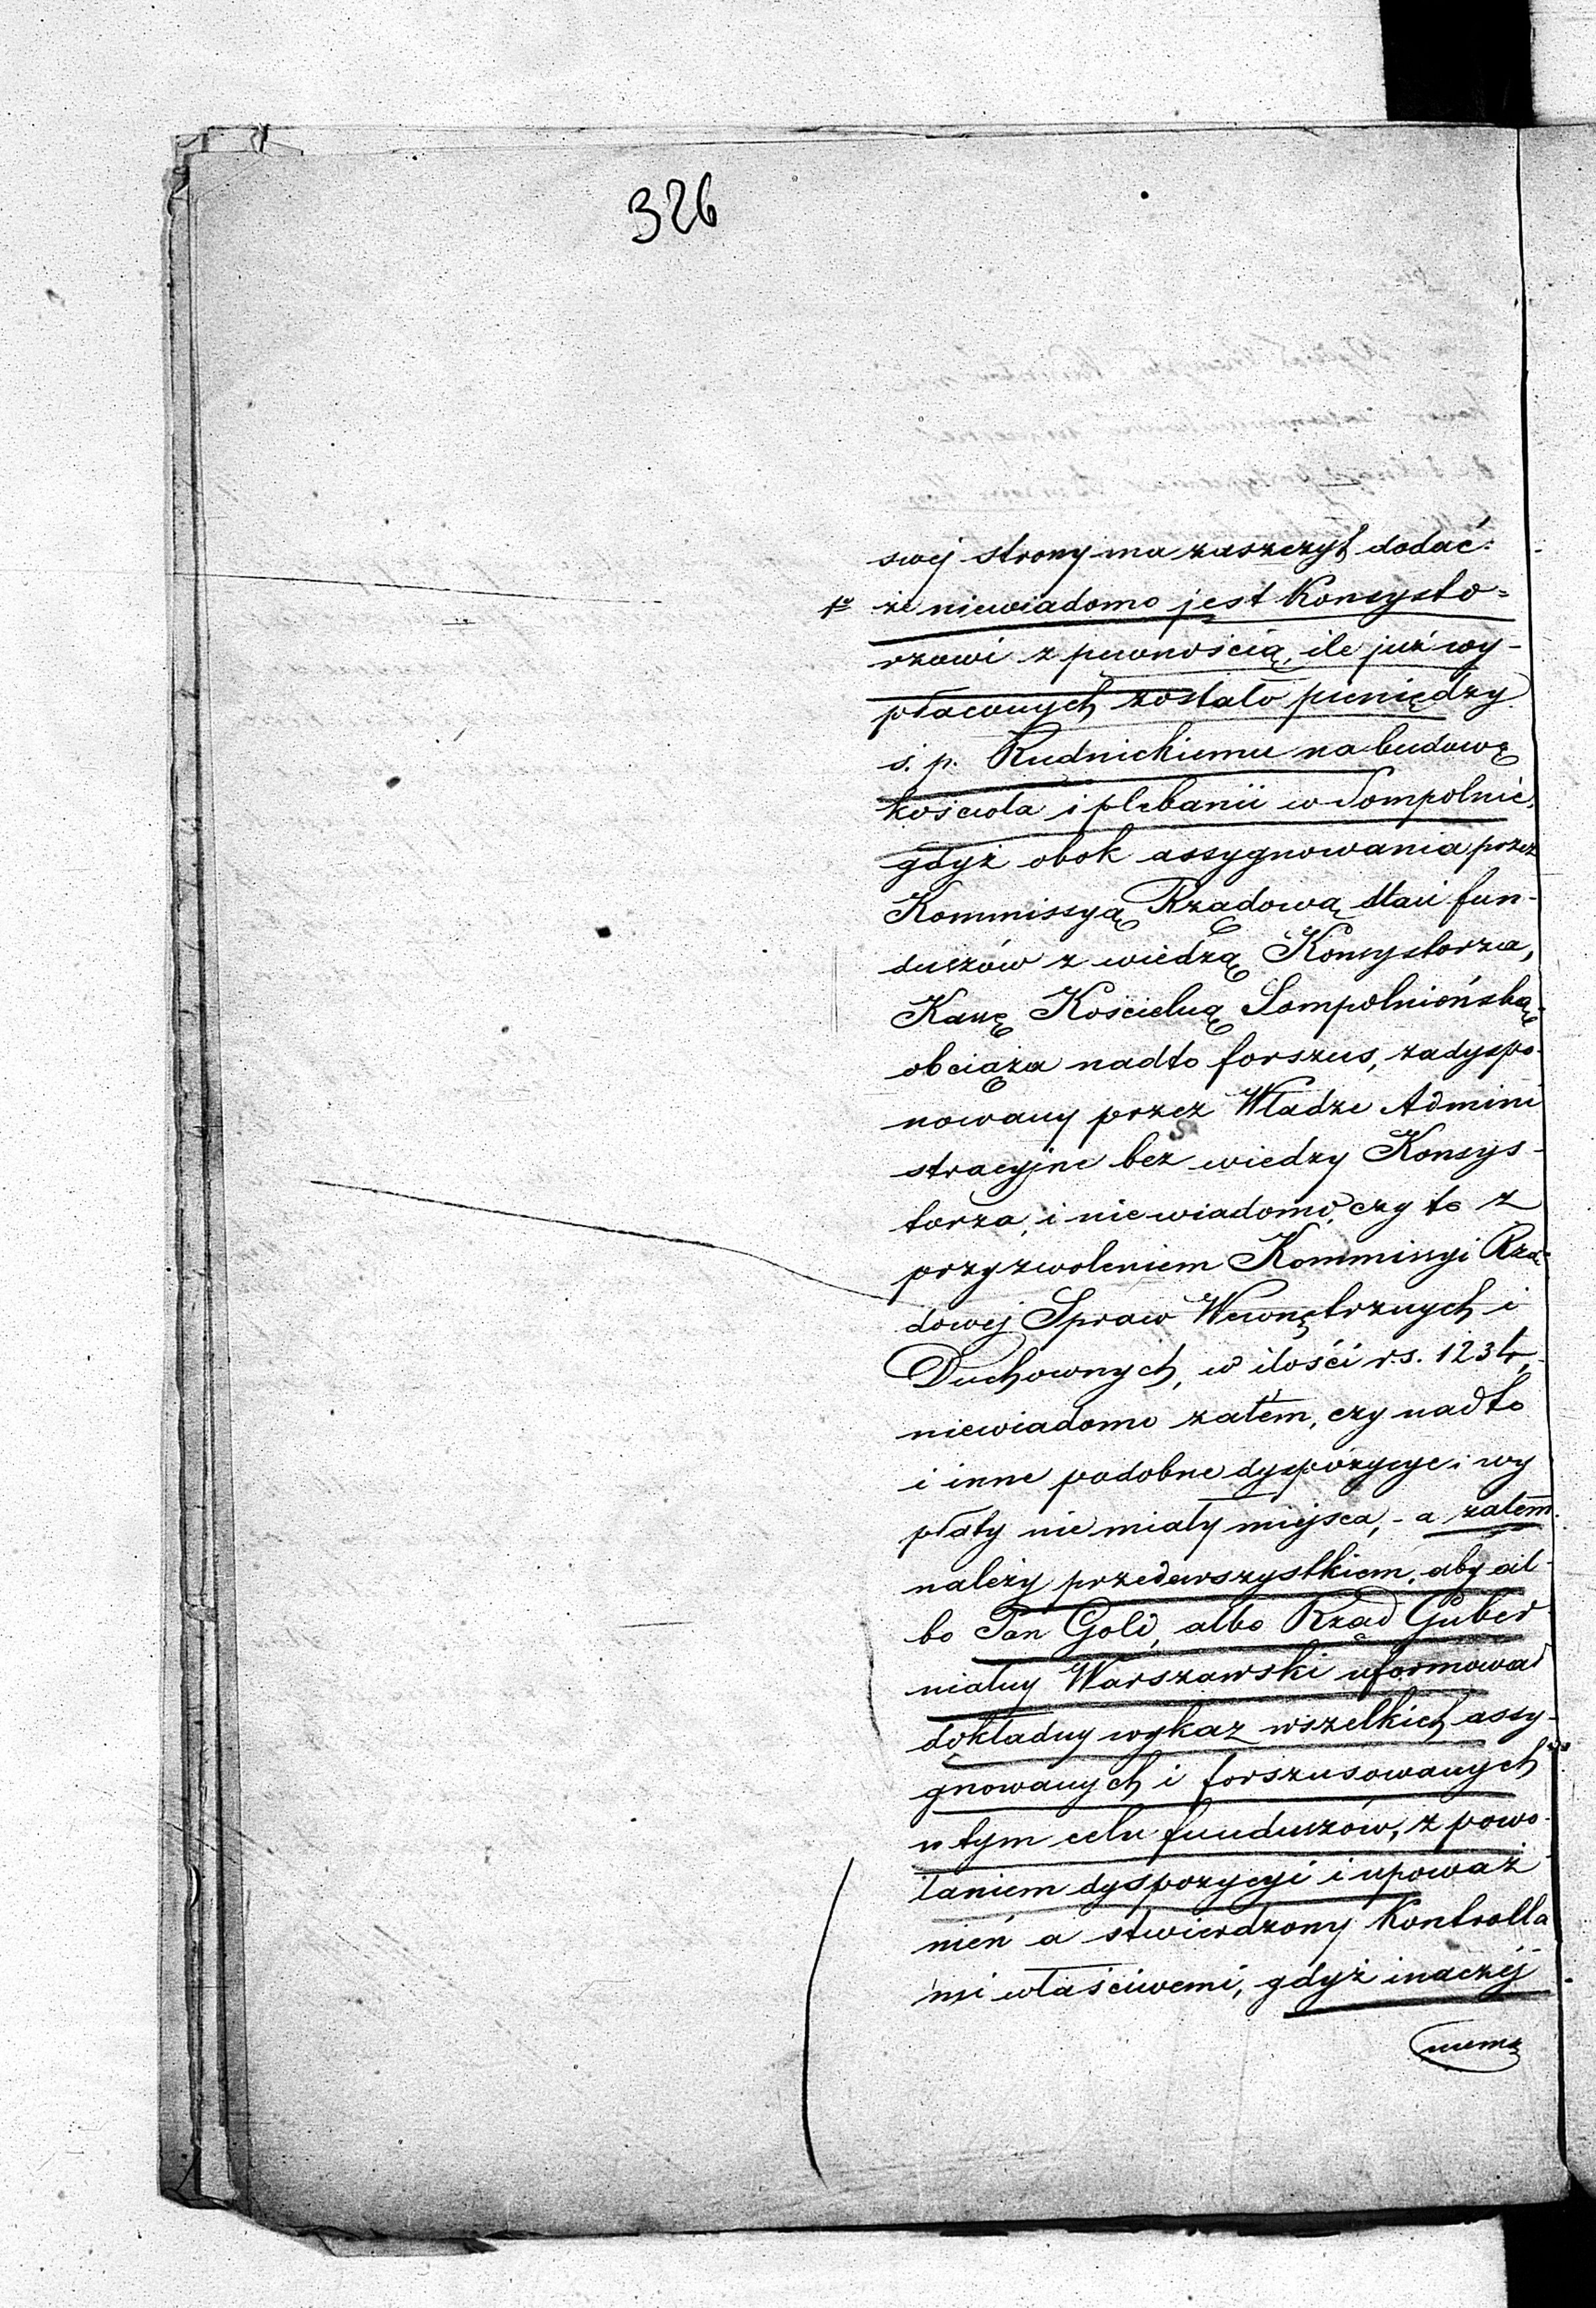 326
swej strony ma zaszczyt dodać:
1º że niewiadomo jest Konsysto=
rzowi z pewnością, ile już wy-
płaconych zostało pieniędzy
ś. p. Rudnickiemu na budowę
kościoła i plebanii w Sompolnie,
gdyż obok assygnowania przez
Kommissyą Rządową stau fun-
duszów z wiedzą Konsystorza,
Kassę Kościelną Sompolnieńską
obciąża nadto forszus, zadyspo-
nowany przez Władze Admini
stracyjne bez wiedzy Konsys-
torza, i niewiadomo, czy to z
przyzwoleniem Kommissyi Rzą-
dowej Spraw Wewnętrznych i
Duchownych, w ilości r.s. 1234,
niewiadomo zatem, czy nadto
i inne podobne dyspozycye i wy
płaty nie miały miejsca, - a zatem
należy przedewszystkiem, aby al-
bo Pan Gold, albo Rząd Guber
nialny Warszawski uformował
dokładny wykaz wszelkich assy-
gnowanych i forszusowanych
w tym celu funduszów, z powo-
łaniem dyspozycyi i upoważ
nień a stwierdzony Kontrolla
mi właściwemi, gdyż inaczej